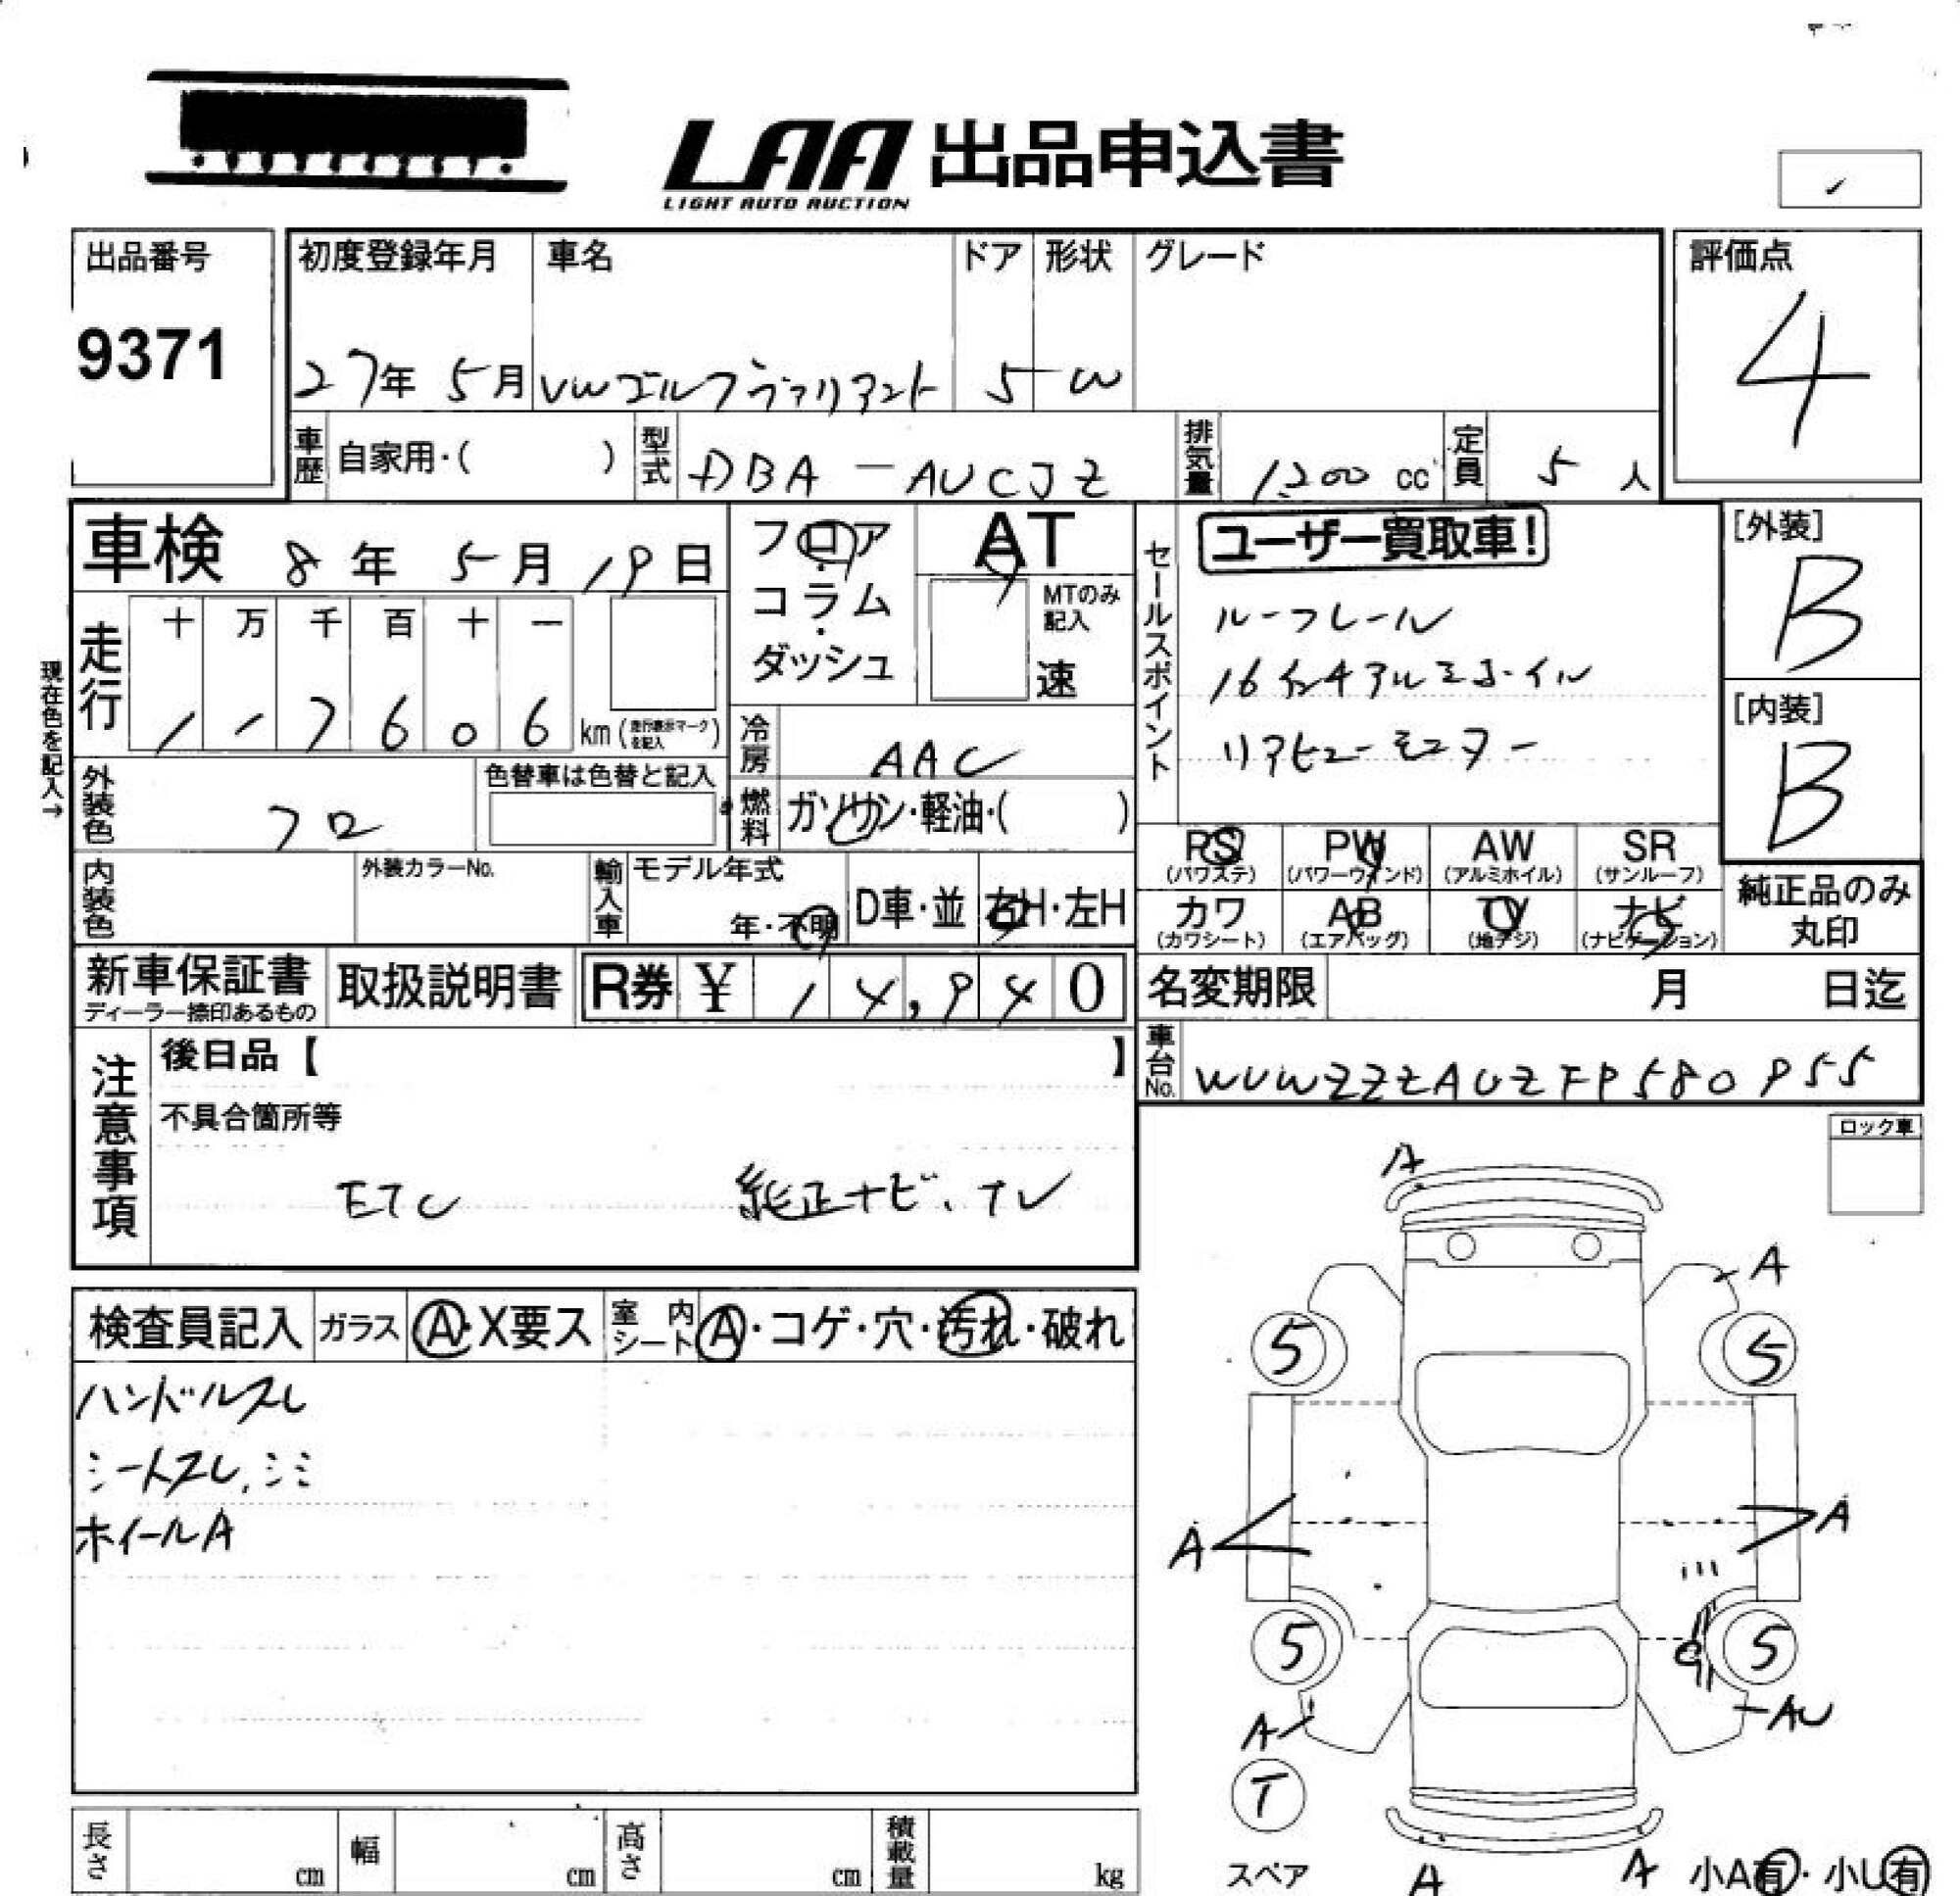 LAA 出品申込書
LIGHT AUTO AUCTION
出品番号
9371
初度登録年月 車名 ドア 形状 グレード
27年 5月 VWゴルフヴァリアント 5 W
評価点
4
車歴 自家用・( ) 型式 DBA-AUCJZ 排気量 1,200 cc 定員 5 人
車検 8年 5月 19日
フロア・コラム・ダッシュ
AT
MTのみ記入
速
セールスポイント
ユーザー買取車!
ルーフレール
16インチアルミホイル
リアビューモニター
[外装]
B
[内装]
B
現在色を記入→
走行 十 万 千 百 十 一
1 1 7 6 0 6 km (走行表示マークを記入)
冷房 AAC
外装色 クロ 色替車は色替と記入
燃料 ガソリン・軽油・( )
PS (パワステ) PW (パワーウインド) AW (アルミホイル) SR (サンルーフ)
カワ (カワシート) AB (エアバッグ) TV (地デジ) ナビ (ナビゲーション)
純正品のみ丸印
内装色 外装カラーNo. 輸入車 モデル年式 年・不明 D車・並 右H・左H
新車保証書 ディーラー捺印あるもの 取扱説明書 R券 ¥ 14,940
名変期限 月 日迄
車台No. WVWZZZAUZFP580955
注意事項
後日品【 】
不具合箇所等
ETC 純正ナビ、TV
ロック車
検査員記入 ガラス A・X要ス 室内シート A・コゲ・穴・汚れ・破れ
ハンドルスレ
シートスレ、シミ
ホイールA
A
A
5 5
A A
5 5
A AU
T
スペア
A A
小A有・小U有
長さ cm 幅 cm 高さ cm 積載量 kg